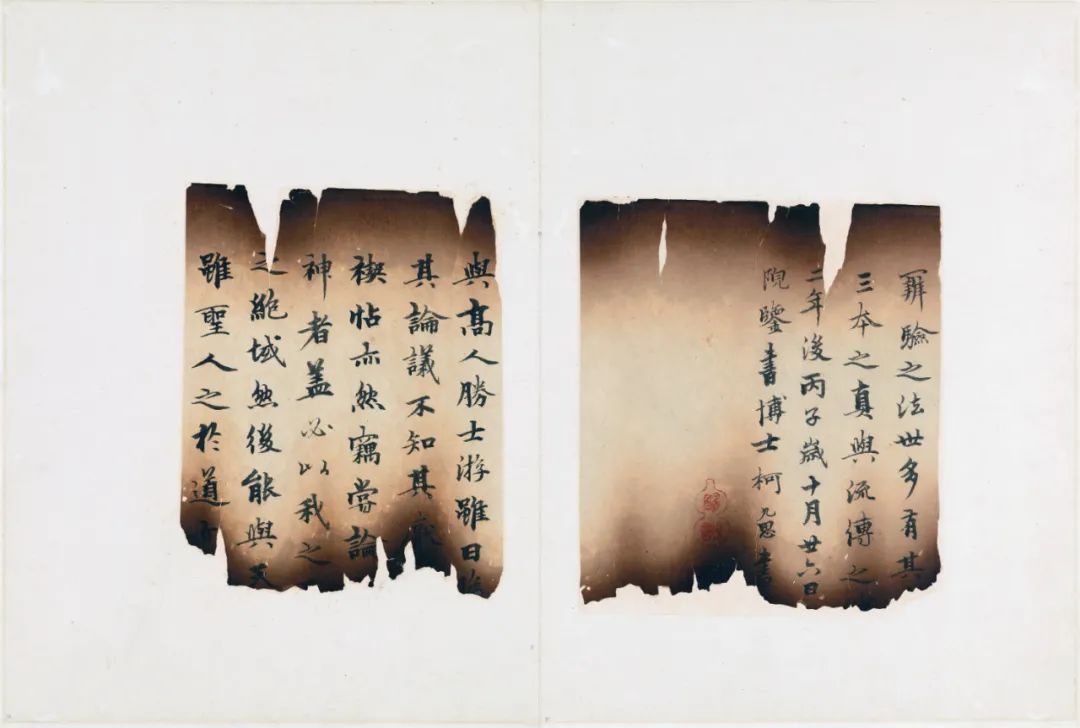 辨驗之法世多有其
三本之真與流傳之
二年後丙子歲十月廿六日
院鑒書博士柯九思書
與高人勝士游雖日
其論議不知其
禊帖亦然竊嘗論
神者盖必以我之
之絶域然後能與天
雖聖人之於道